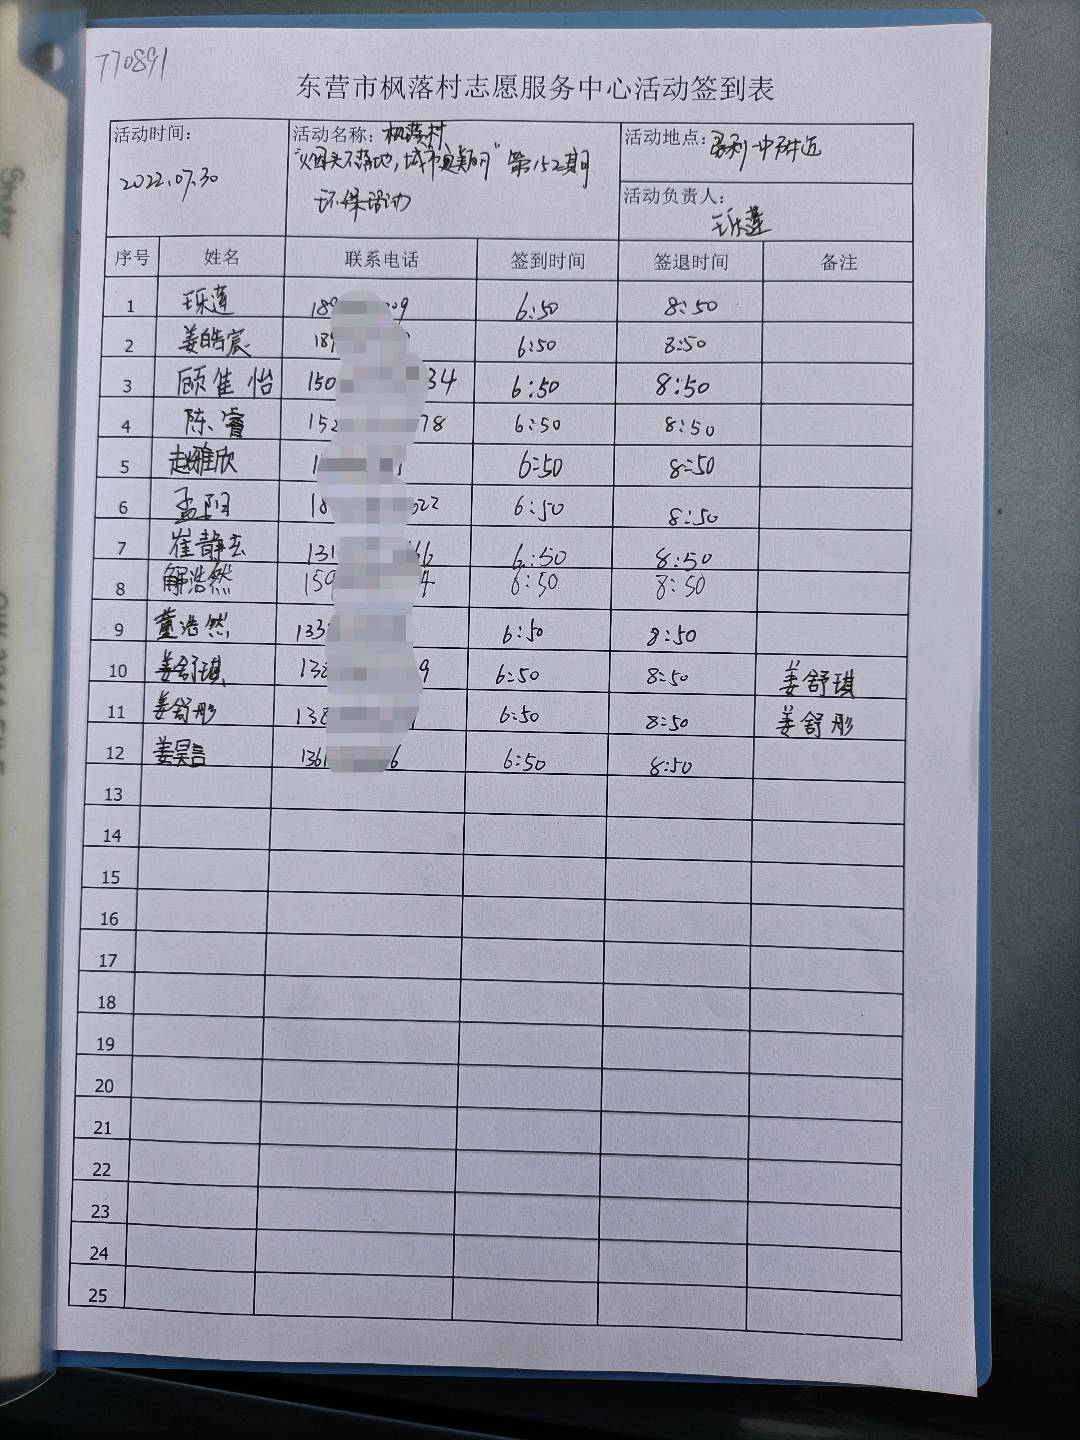 770891
东营市枫落村志愿服务中心活动签到表
活动时间：
2022.07.30
活动名称：枫落村
"火烟头不落地，城市更美丽" 第152期
环保活动
活动地点：胜利一中附近
活动负责人：
王乐莲
序号 姓名 联系电话 签到时间 签退时间 备注
1 王乐莲 189 09 6:50 8:50
2 姜皓宸 18 6:50 8:50
3 顾佳怡 150 34 6:50 8:50
4 陈睿 152 78 6:50 8:50
5 赵雅欣 1 6:50 8:50
6 孟阳 18 22 6:50 8:50
7 崔静 131 66 6:50 8:50
8 解浩然 159 4 6:50 8:50
9 董浩然 133 6:50 8:50
10 姜舒琪 132 9 6:50 8:50 姜舒琪
11 姜舒彤 138 6:50 8:50 姜舒彤
12 姜昊言 1361 6 6:50 8:50
13
14
15
16
17
18
19
20
21
22
23
24
25